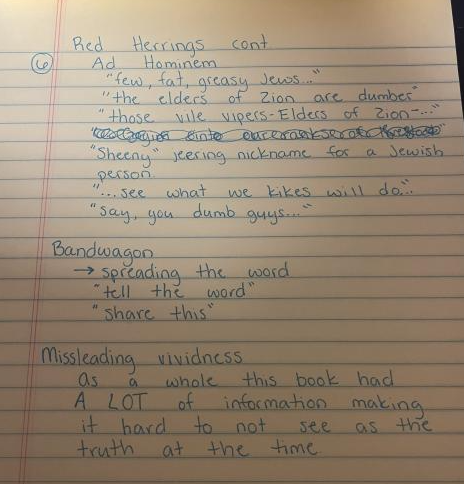 Red Herrings cont
6 Ad Hominem
"few, fat, greasy Jews..."
"the elders of Zion are dumber"
"those vile vipers-Elders of Zion-..."
"Sheeny" jeering nickname for a Jewish
person.
"...see what we kikes will do..."
"Say, you dumb guys..."
Bandwagon
→ spreading the word
"tell the word"
"share this"
Missleading vividness
as a whole this book had
A LOT of information making
it hard to not see as the
truth at the time.